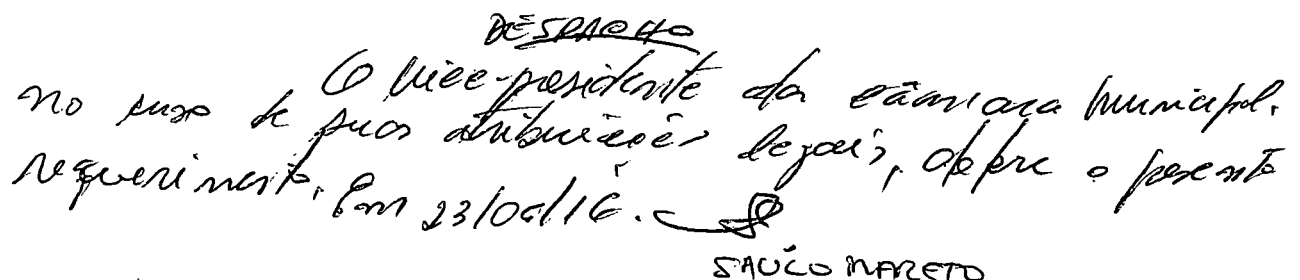 DESPACHO
O Vice-presidente da câmara Municipal.
no uso de suas atribuições legais, defere o presente
requerimento. Em 23/06/16.
SAULO MARETO